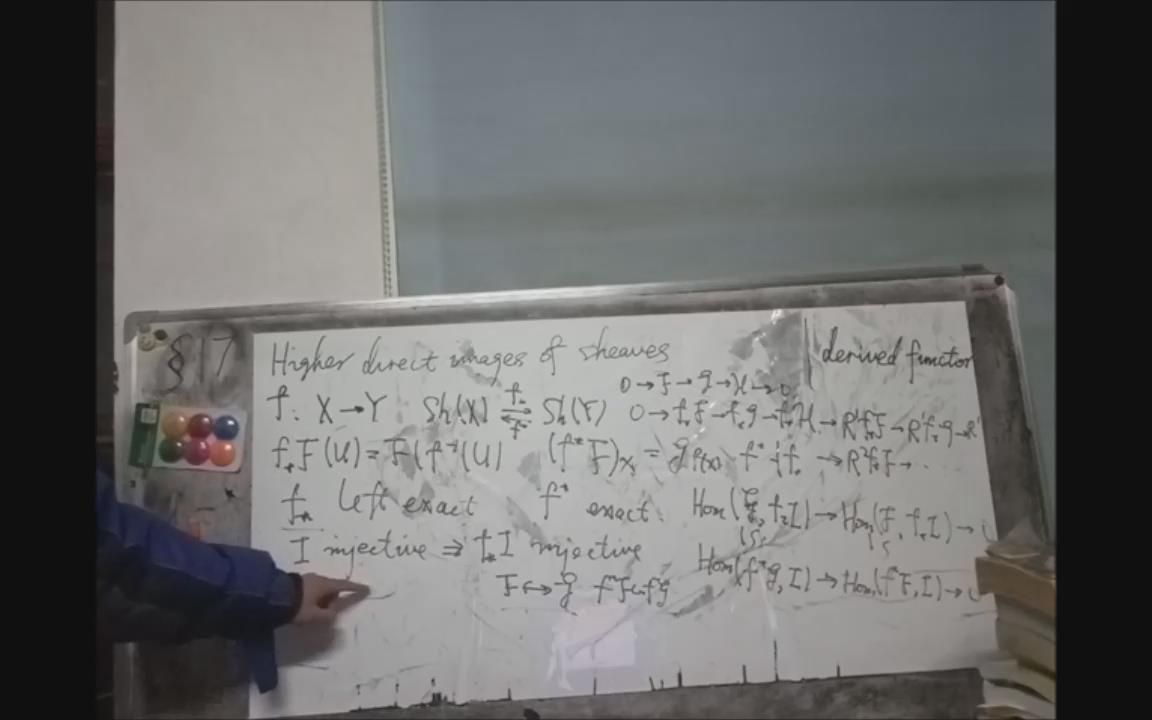 §17
Higher direct images of sheaves
derived functor
0→F→G→H→0
f: X→Y Sh(X) ⇄ Sh(Y) 0→f*F→f*G→f*H→R¹f*F→R¹f*G→R¹
f*F(U)=F(f⁻¹(U) (f*F)x = G f(x) f* ⊣ f* →R²f*F→...
f* left exact f* exact. Hom(G, f*I)→Hom(F, f*I)→0
I injective ⇒ f*I injective
Hom(f*G, I)→Hom(f*F, I)→0
F↪G f*F↪f*G